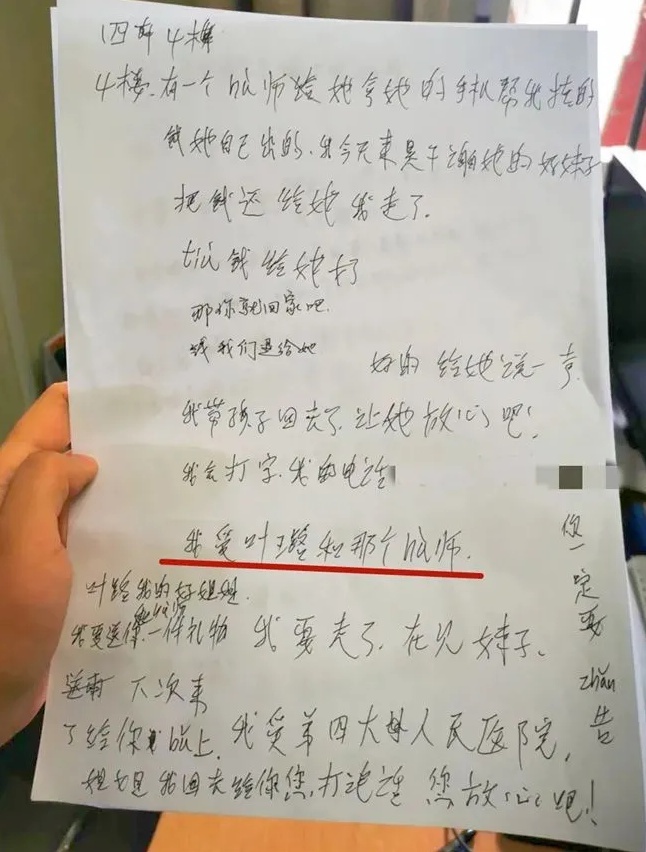 四车4楼
4楼.有一个hù师给她拿她的手机帮我挂的
钱她自己出的.我今天来是干谢她的好妹子
把钱还给她我走了.
tiù钱给她打
那你就回家吧.
钱我们退给她
好的给她说一声.
我带孩子回去了.让她放心吧!
我会打字.我的电话
我爱叶璐和那个hù师.
叶璐我的好姐姐.
我要送你一件礼物 我要走了.在见妹子.
下次来
了给你 上.我爱第四大 人民医院,
姐 我回去给你您.打电话 您放心吧!
您一定要zhǎn告